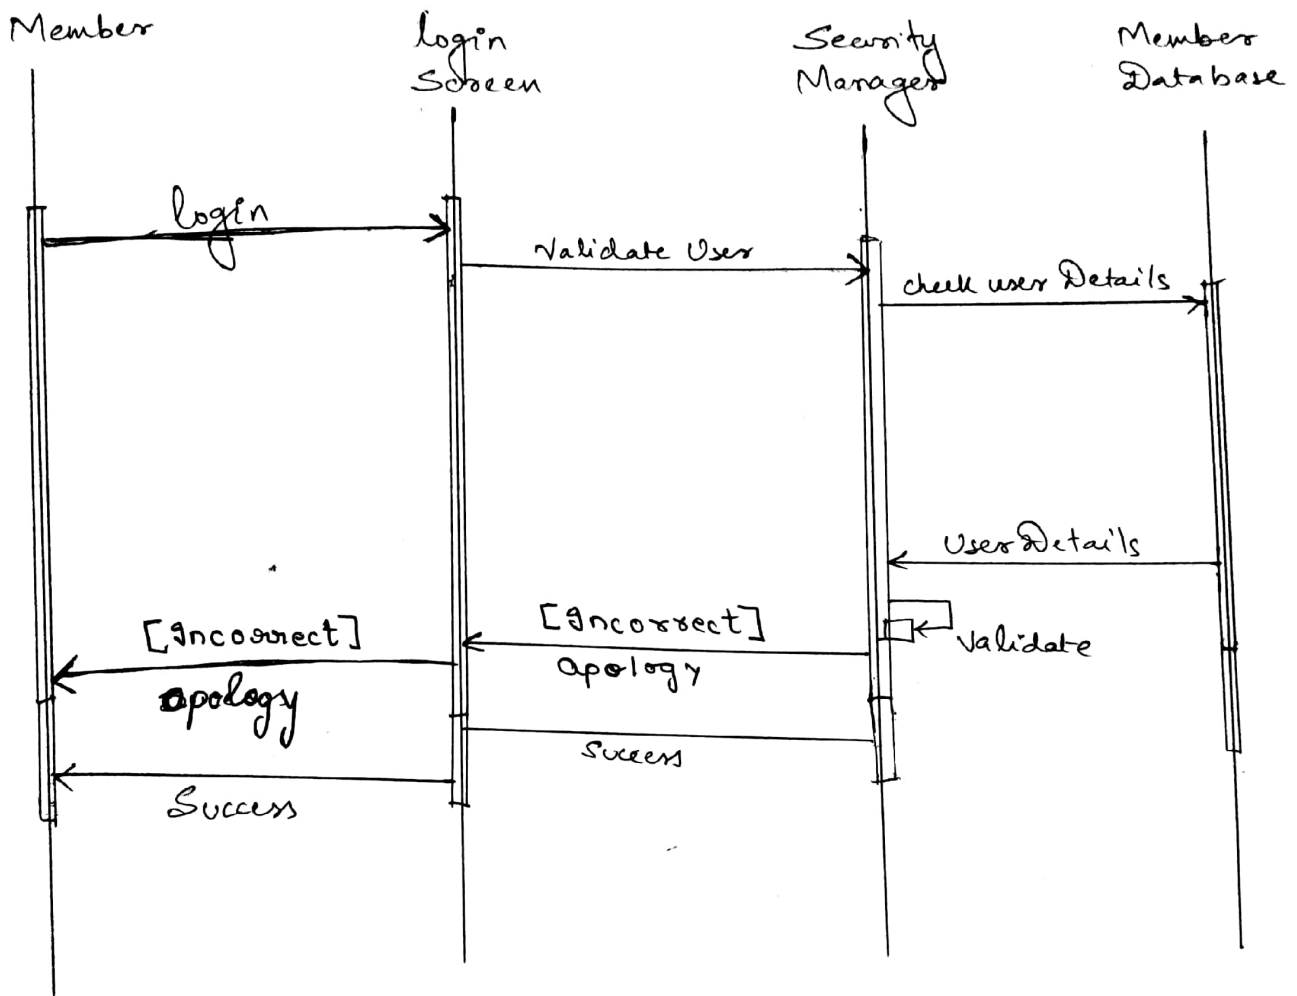 Member
login
Screen
Security
Manager
Member
Database
login
Validate User
check user Details
User Details
[Incorrect]
apology
[Incorrect]
apology
Validate
Success
Success